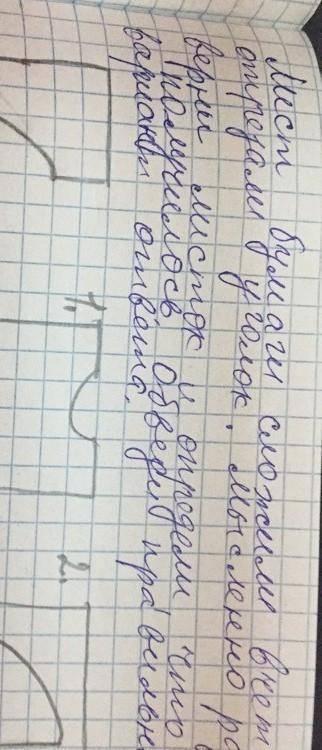 Лист бумаги сложили вчет
отрезали уголок. Мысленно ра
верни листок и определи что
получилось. Обведи правильн
варианты ответа.
1.
2.